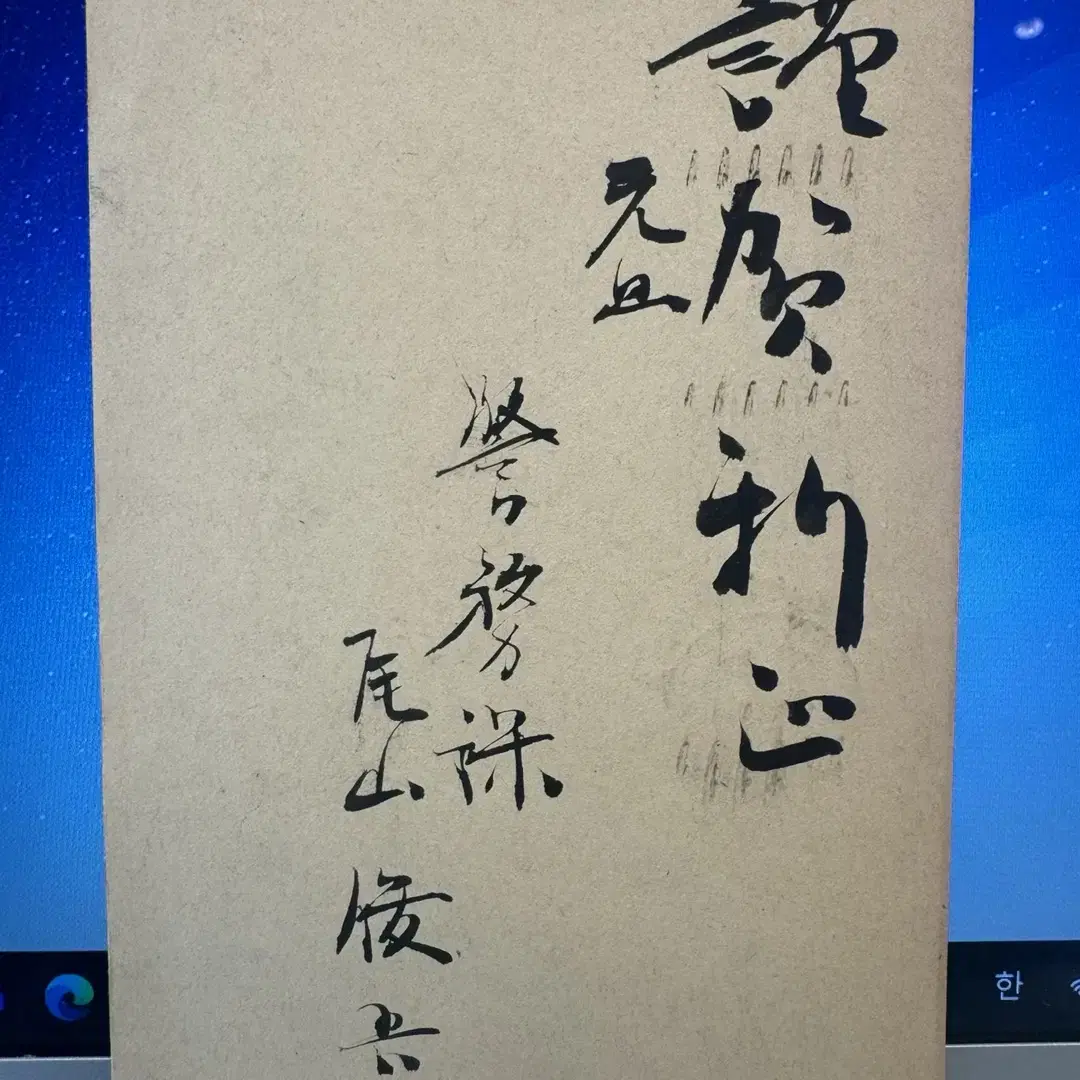 謹賀新正
元旦
警務課
尾山 俊吾
한